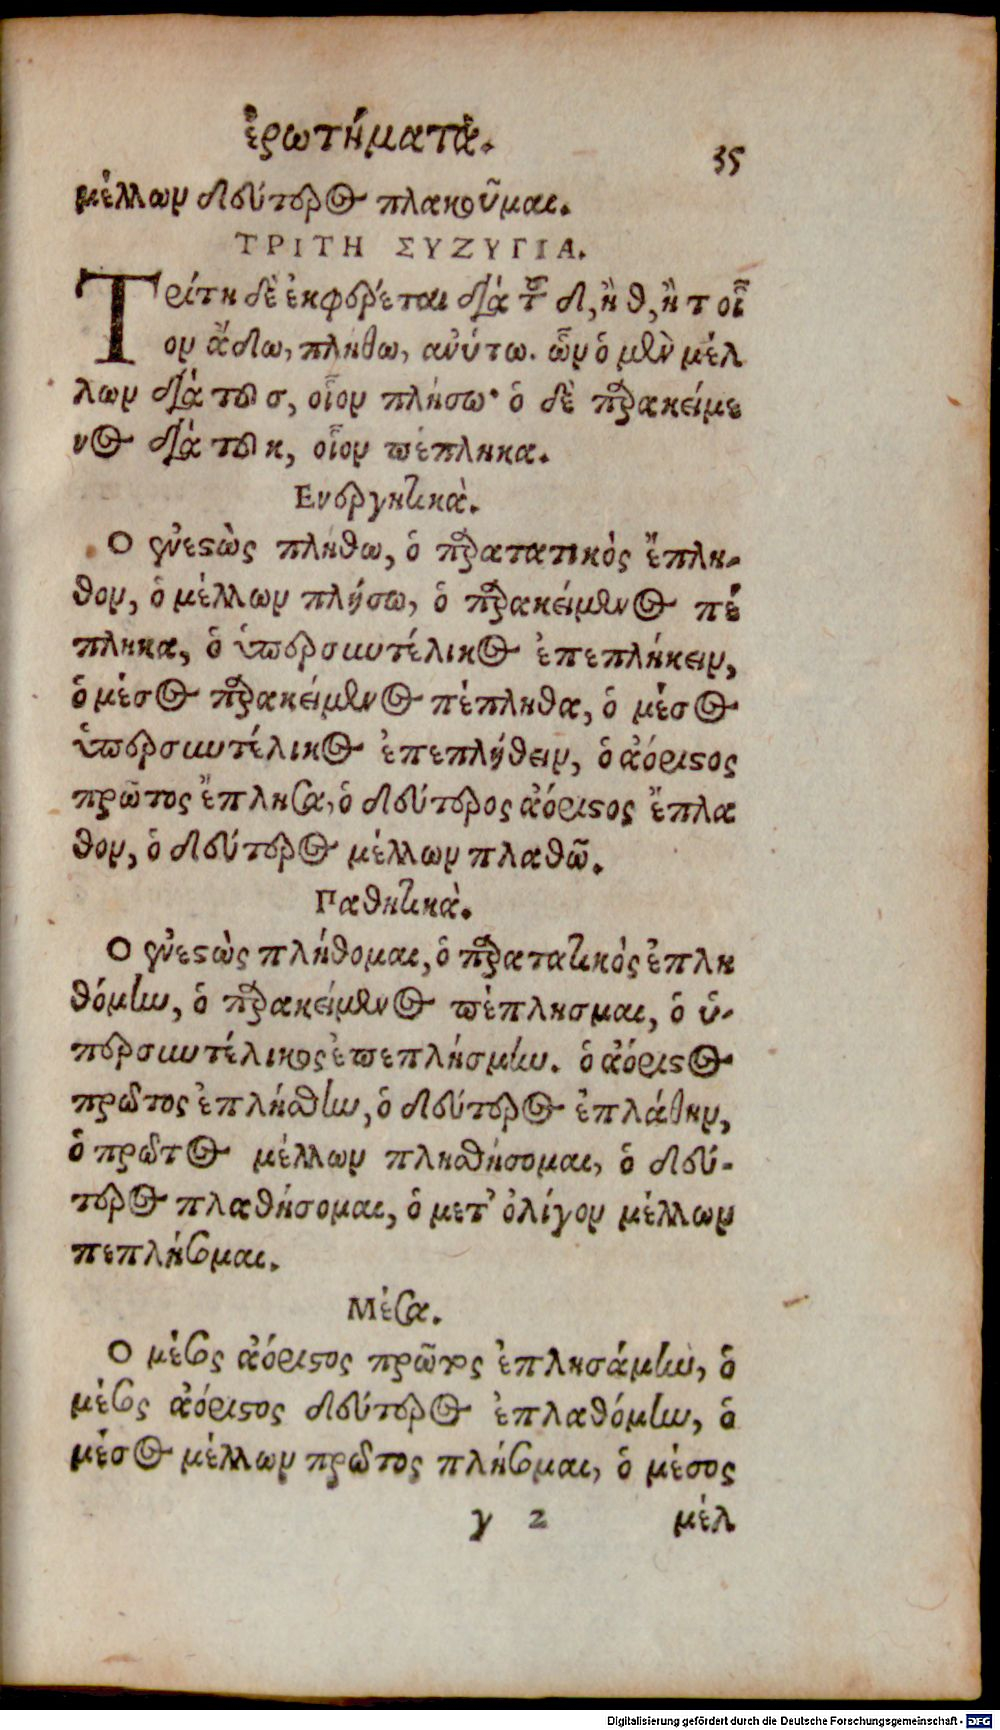 ἐρωτήματα.
35
μέλλων δεύτερος πλακοῦμαι.
ΤΡΙΤΗ ΣΥΖΥΓΙΑ.
Τρίτη δὲ ἐκφέρεται διὰ τοῦ δ, ἢ θ, ἢ τ οἷ
ον ἄδω, πλήθω, ἀνύτω. ὧν ὁ μὲν μέλ
λων διὰ τοῦ σ, οἷον πλήσω· ὁ δὲ παρακείμε
νος διὰ τοῦ κ, οἷον πέπληκα.
Ενεργητικὰ.
Ο ἐνεστὼς πλήθω, ὁ παρατατικός ἔπλη-
θον, ὁ μέλλων πλήσω, ὁ παρακείμενος πέ
πληκα, ὁ ὑπερσυντέλικος ἐπεπλήκειν,
ὁ μέσος παρακείμενος πέπληθα, ὁ μέσος
ὑπερσυντέλικος ἐπεπλήθειν, ὁ ἀόριστος
πρῶτος ἔπλησα, ὁ δεύτερος ἀόριστος ἔπλα
θον, ὁ δεύτερος μέλλων πλαθῶ.
Παθητικὰ.
Ο ἐνεστὼς πλήθομαι, ὁ παρατατικός ἐπλη
θόμην, ὁ παρακείμενος πέπλησμαι, ὁ ὑ-
περσυντέλικος ἐπεπλήσμην. ὁ ἀόριστος
πρῶτος ἐπλήσθην, ὁ δεύτερος ἐπλάθην,
ὁ πρῶτος μέλλων πλησθήσομαι, ὁ δεύ-
τερος πλαθήσομαι, ὁ μετ' ὀλίγον μέλλων
πεπλήσομαι.
Μέσα.
Ο μέσος ἀόριστος πρῶτος ἐπλησάμην, ὁ
μέσος ἀόριστος δεύτερος ἐπλαθόμην, ὁ
μέσος μέλλων πρῶτος πλήσομαι, ὁ μέσος
γ 2 μέλ
Digitalisierung gefördert durch die Deutsche Forschungsgemeinschaft - DFG